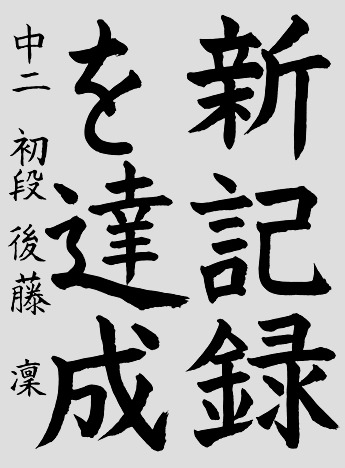 新記録
を達成
中二 初段 後藤 凜